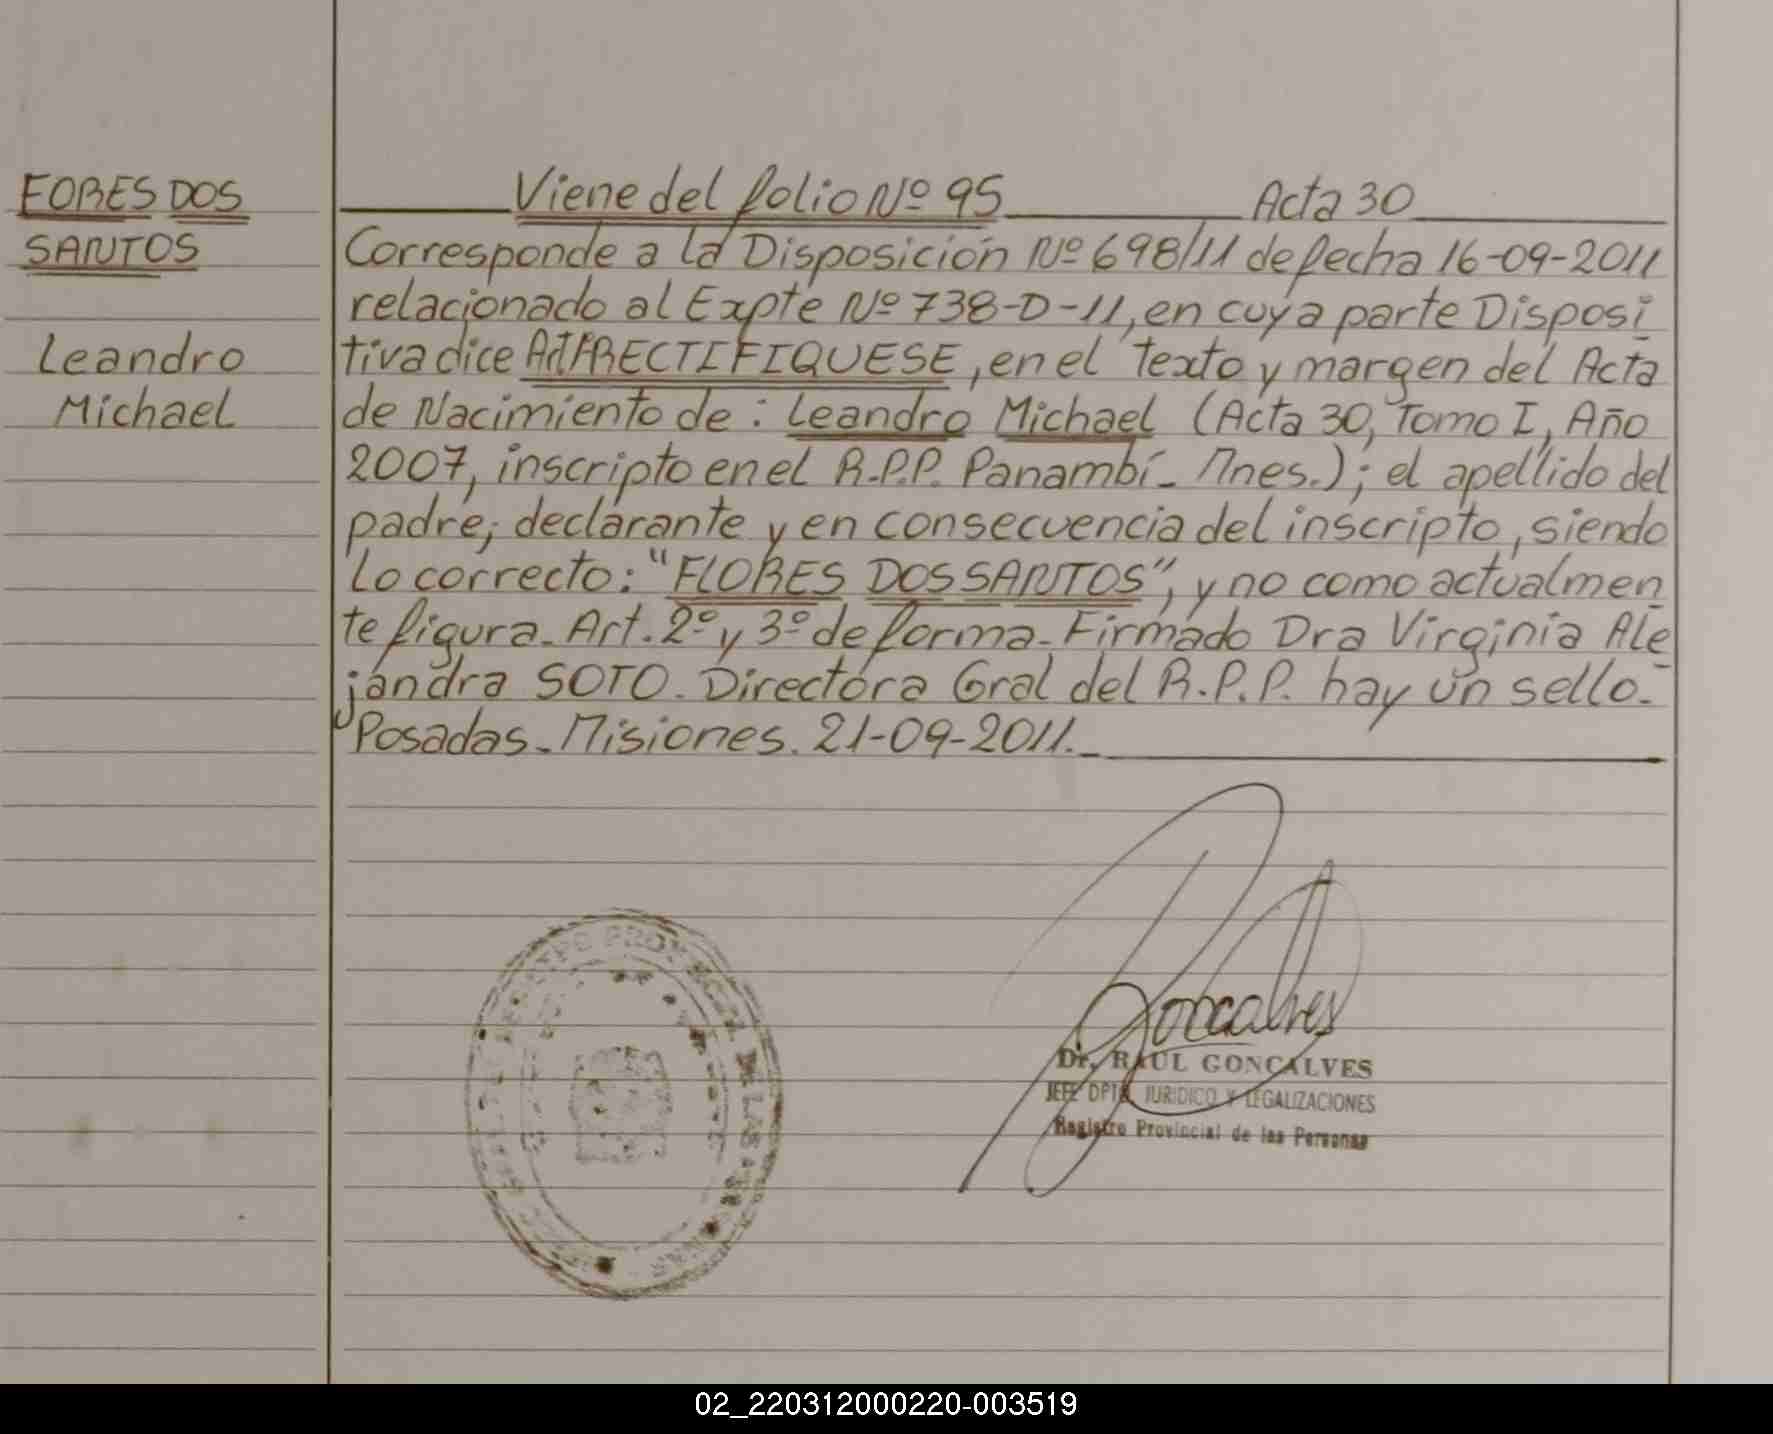 FORES DOS
SANTOS
Leandro
Michael
Viene del folio Nº 95 Acta 30
Corresponde a la Disposición Nº 698/11 de fecha 16-09-2011
relacionado al Expte Nº 738-D-11, en cuya parte Disposi
tiva dice Art 1º RECTIFIQUESE, en el texto y margen del Acta
de Nacimiento de: Leandro Michael (Acta 30, Tomo I, Año
2007, inscripto en el R.P.P. Panambí - Mnes.); el apellido del
padre; declarante y en consecuencia del inscripto, siendo
lo correcto: "FLORES DOS SANTOS", y no como actualmen
te figura. Art. 2º y 3º de forma. Firmado Dra Virginia Ale
jandra SOTO. Directora Gral del R.P.P. hay un sello.-
Posadas - Misiones. 21-09-2011.-
Goncalves
Dr. RAUL GONCALVES
JEFE DPTO. JURIDICO Y LEGALIZACIONES
Registro Provincial de las Personas
DE LAS
02_220312000220-003519